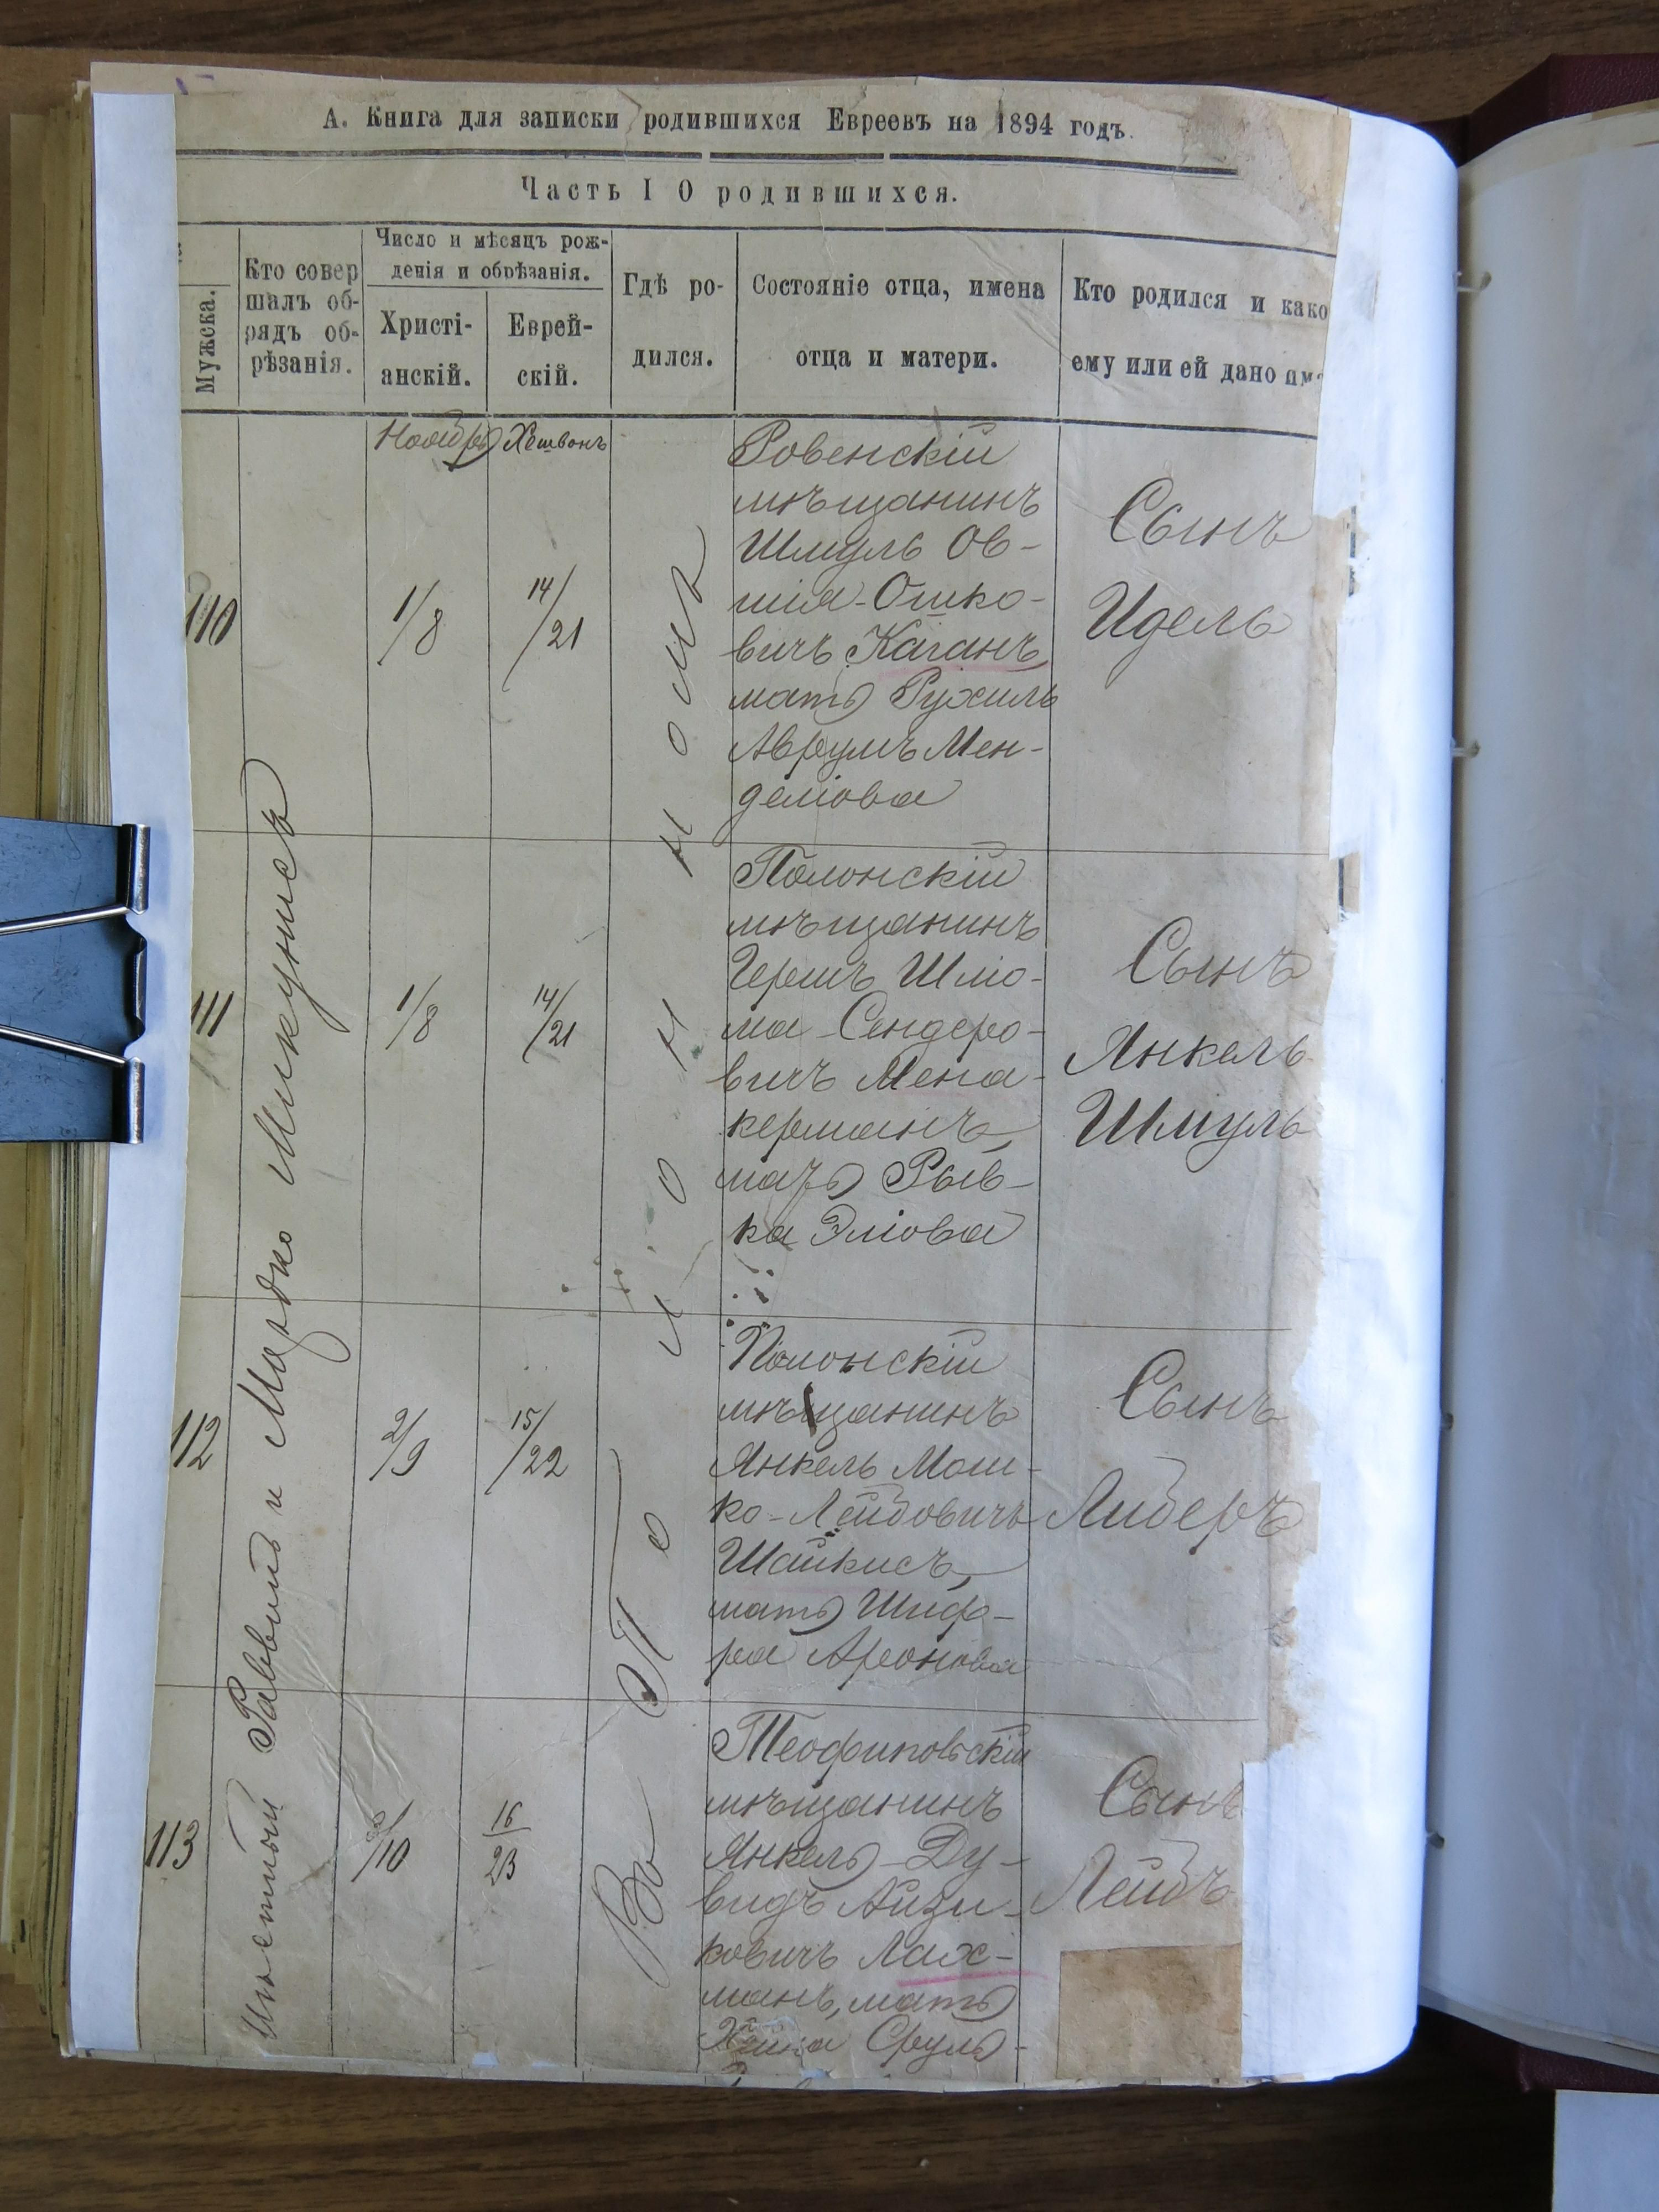 А. Книга для записки родившихся Евреевъ на 1894 годъ.
Часть I О родившихся.
Мужска.
Кто совер
шалъ об-
рядъ об-
рѣзанія.
Число и мѣсяцъ рож-
денія и обрѣзанія.
Христі-
анскій.
Еврей-
скій.
Гдѣ ро-
дился.
Состояніе отца, имена
отца и матери.
Кто родился и како
ему или ей дано им
Раввинъ и Мордко Микунисъ
Во м Полонномъ
Ноября
Хешвонъ
110
1/8
14/21
Ровенскій
мѣщанинъ
Шмуль Ов-
шія-Ошко-
вичъ Каганъ,
мать Рухиль
Аврумъ Мен-
делiова
Сынъ
Идель
111
1/8
14/21
Полонскій
мѣщанинъ
Гершъ Шлio-
ма-Сендеро-
вичъ Мена-
керманъ,
мать Рыв-
ка Элiова
Сынъ
Янкель
Шмуль
112
2/9
15/22
Полонскій
мѣщанинъ
Янкель Мош-
ко-Лейбовичъ
Шайкисъ,
мать Шиф-
ра Ароновa
Сынъ
Либеръ
113
3/10
16/23
Теофиповьскій
мѣщанинъ
Янкель-Ду-
видъ Айзи-
ковичъ Лах-
манъ, мать
Сруль-
Сынъ
Лейбъ